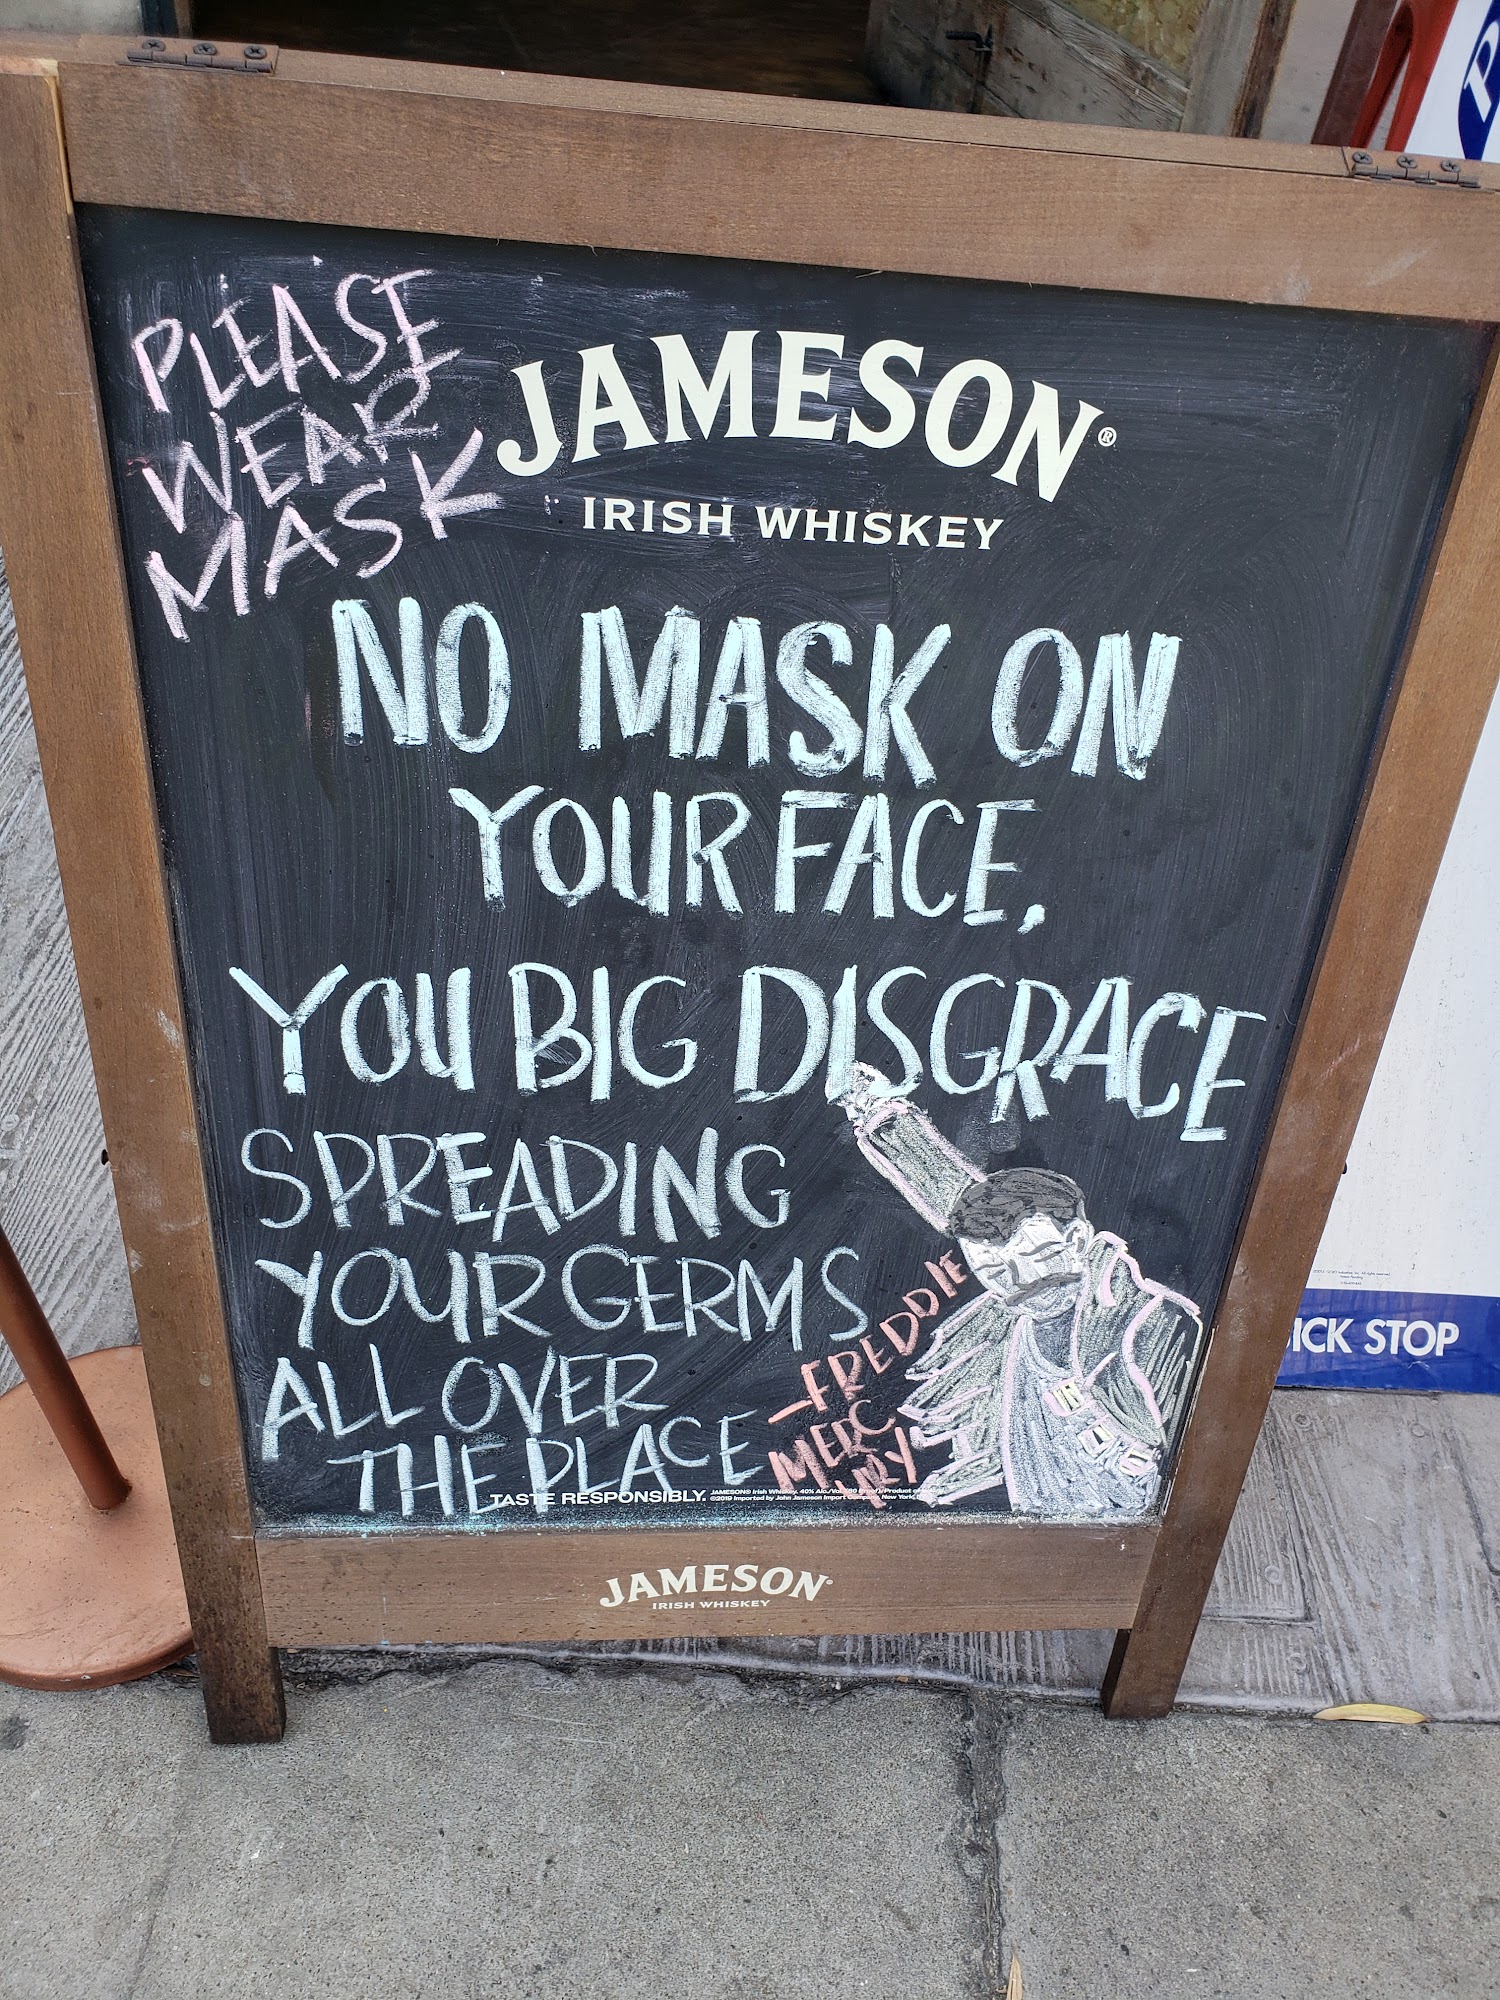 PLEASE
WEAR
MASK
JAMESON®
IRISH WHISKEY
NO MASK ON
YOUR FACE,
YOU BIG DISGRACE
SPREADING
YOUR GERMS
ALL OVER
THE PLACE
-FREDDIE
MERC
URY
TASTE RESPONSIBLY.
JAMESON® Irish Whiskey. 40% Alc./Vol. (80 Proof) Product of
©2019 Imported by John Jameson Import Company, New York,
JAMESON®
IRISH WHISKEY
ICK STOP